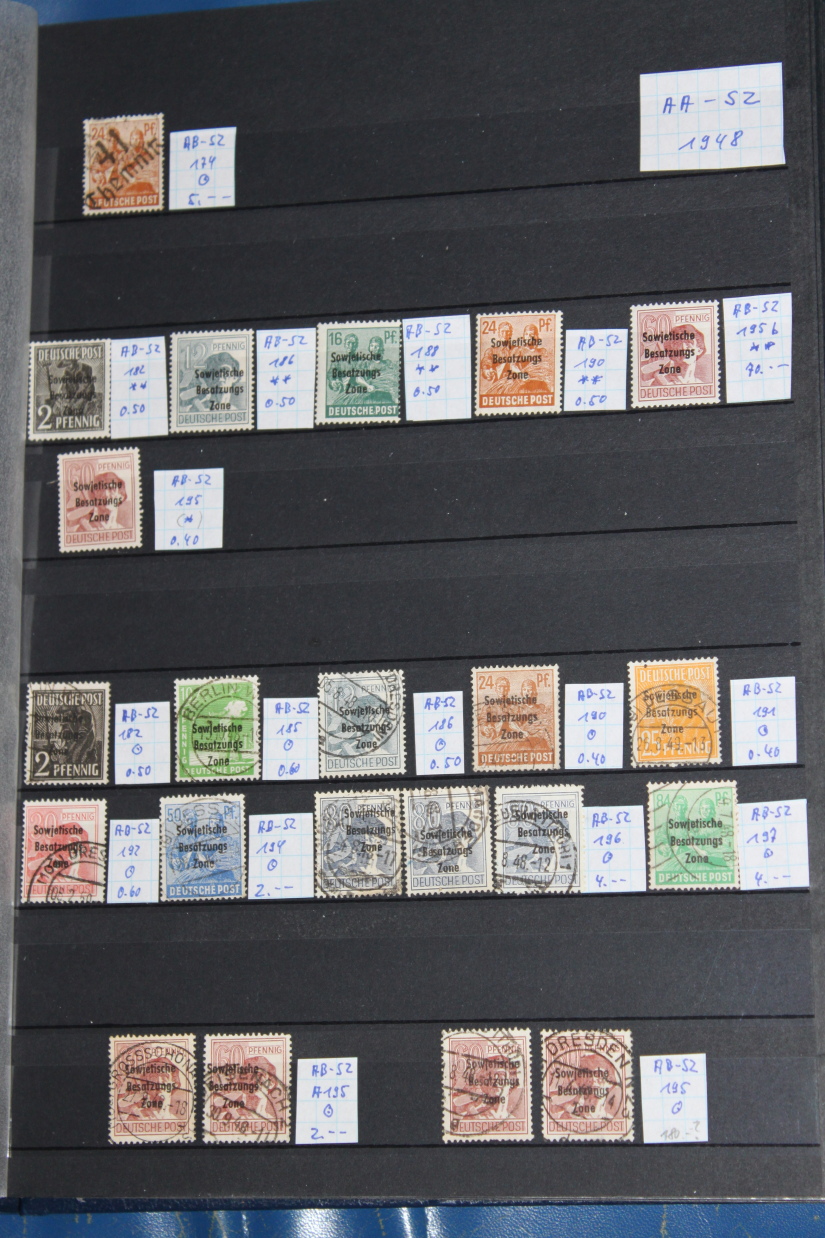 AA-SZ
1948
24 Pf.
41
DEUTSCHE POST
AB-SZ
174
⊙
5,--
DEUTSCHE POST
Sowjetische
Besatzungs
Zone
2 PFENNIG
AB-SZ
182
**
0.50
12 PFENNIG
Sowjetische
Besatzungs
Zone
DEUTSCHE POST
AB-SZ
186
**
0.50
16 Pf.
Sowjetische
Besatzungs
Zone
DEUTSCHE POST
AB-SZ
188
**
0.50
24 Pf.
Sowjetische
Besatzungs
Zone
DEUTSCHE POST
AB-SZ
190
**
0.50
60 PFENNIG
Sowjetische
Besatzungs
Zone
DEUTSCHE POST
AB-SZ
195b
**
70.--
60 PFENNIG
Sowjetische
Besatzungs
Zone
DEUTSCHE POST
AB-SZ
195
(*)
0.40
DEUTSCHE POST
2 PFENNIG
AB-SZ
182
⊙
0.50
BERLIN
Sowjetische
Besatzungs
Zone
AB-SZ
185
⊙
0.60
PFENNIG
Sowjetische
Besatzungs
Zone
DEUTSCHE POST
AB-SZ
186
⊙
0.50
24 Pf.
Sowjetische
Besatzungs
Zone
DEUTSCHE POST
AB-SZ
190
⊙
0.40
DEUTSCHE POST
Sowjetische
Besatzungs
Zone
AB-SZ
191
⊙
0.40
PFENNIG
Sowjetische
Besatzungs
Zone
AB-SZ
192
⊙
0.60
50 Pf.
Sowjetische
Besatzungs
Zone
DEUTSCHE POST
AB-SZ
194
⊙
2.--
80 PFENNIG
Sowjetische
Besatzungs
Zone
DEUTSCHE POST
80 PFENNIG
Sowjetische
Besatzungs
Zone
DEUTSCHE POST
PFENNIG
Sowjetische
Besatzungs
Zone
DEUTSCHE POST
AB-SZ
196
⊙
4.--
84 Pf.
Sowjetische
Besatzungs
Zone
DEUTSCHE POST
AB-SZ
197
⊙
4.--
60 PFENNIG
Sowjetische
Besatzungs
Zone
DEUTSCHE POST
60 PFENNIG
Sowjetische
Besatzungs
Zone
DEUTSCHE POST
AB-SZ
A195
⊙
2.--
PFENNIG
Sowjetische
Besatzungs
Zone
DEUTSCHE POST
DRESDEN
Sowjetische
Besatzungs
Zone
DEUTSCHE POST
AB-SZ
195
⊙
180.-?